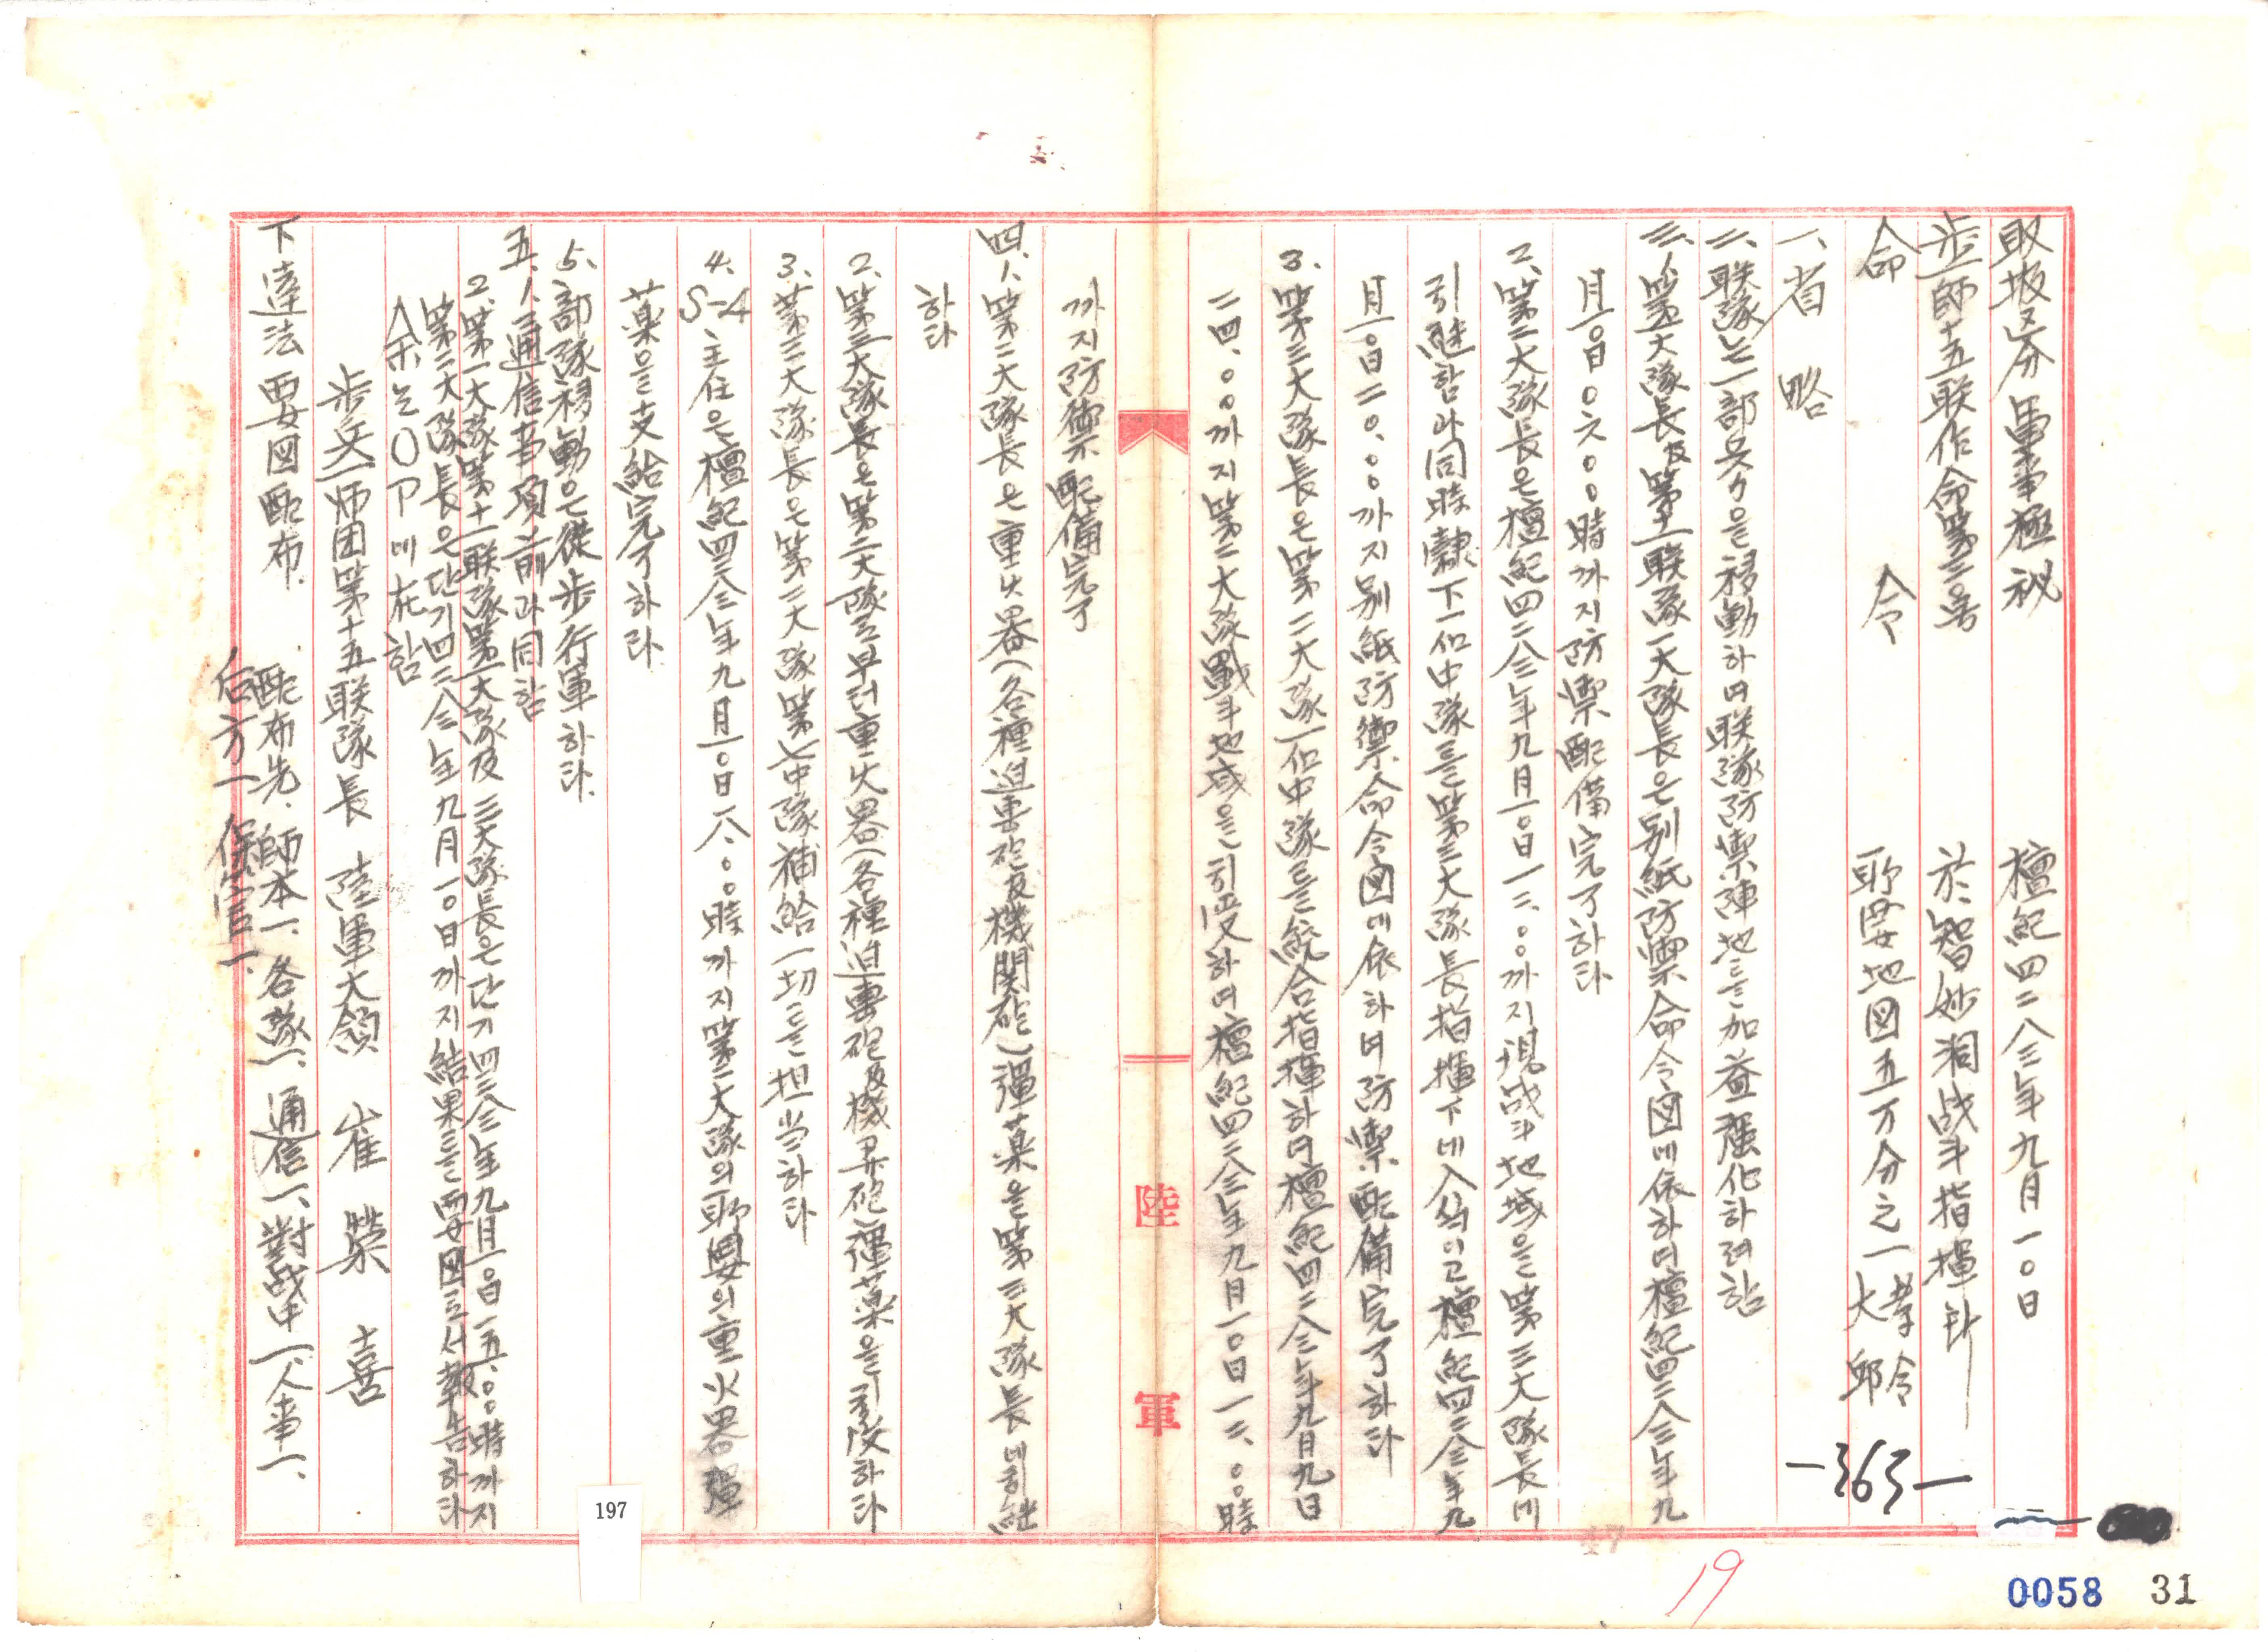 取扱区分 軍事極秘 檀紀四二八三年九月一〇日
步一師十五联作命第三号 於智妙洞战斗指揮所
命 令 所要地図五万分之一 大邱 孝令
一、省 略
二、联隊는 一部兵力을 移動하며 联隊防禦陣地를 加益强化하려함
三、1.第一大隊長及第十一联隊一大隊長은 別紙防禦命令図에 依하며 檀紀四二八三年九
月一〇日〇六〇〇時까지 防禦配備完了하라
2.第二大隊長은 檀紀四二八三年九月一〇日一二.〇〇까지 現战斗地域을 第三大隊長에
引継함과 同時 隷下一個中隊를 第三大隊長指揮下에 入식이고 檀紀四二八三年九
月一〇日二〇.〇〇까지 別紙防禦命令図에 依하며 防禦配備完了하라
3.第三大隊長은 第二大隊一個中隊를 統合指揮하며 檀紀四二八三年九月九日
二四.〇〇까지 第二大隊戰斗地域을 引受하며 檀紀四二八三年九月一〇日一二.〇〇時
까지 防禦配備完了
四、1.第二大隊長은 重火器(各種迫擊砲及機関砲)彈薬을 第三大隊長에 引継
하라
2.第三大隊長은 第二大隊로부터 重火器(各種迫擊砲及機関砲彈薬을 引受하라
3.第三大隊長은 第二大隊第七中隊補給一切를 担当하라
4.S-4主任은 檀紀四二八三年九月一〇日一八.〇〇時까지 第二大隊의 所要의 重火器彈
薬을 支給完了하라
5.部隊移動은 徒步行軍하라.
五、1.通信事項 前과 同함
2.第一大隊第十一联隊第一大隊及三大隊長은 단기四二八三年九月一〇日一五.〇〇時까지
第二大隊長은 단기四二八三年九月一〇日까지 結果를 要図로서 報告하라
余는 OP에 在함
步兵一师団第十五联隊長 陸軍大領 崔 榮 喜
下達法 要図配布. 配布先.師本一、各隊一、通信一、對战中一 人事一、
后方一 保官一、
陸 軍
-363-
197
19
0058 31